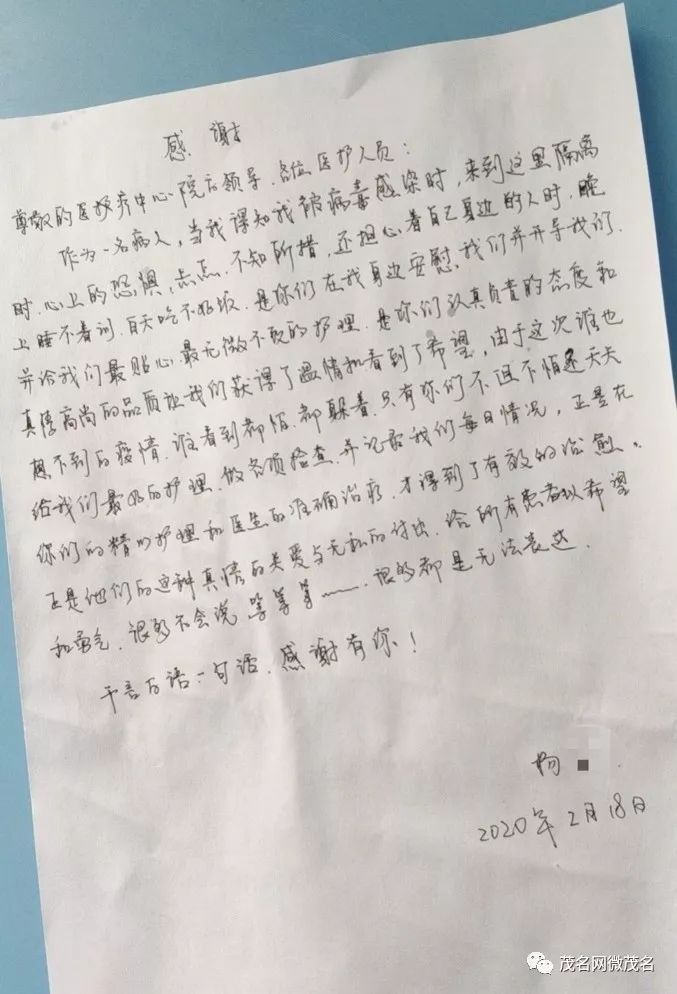 感谢
尊敬的医护疗中心院方领导、各位医护人员：
作为一名病人，当我得知我被病毒感染时，来到这里隔离
时，心上的恐惧，忐忑，不知所措，还担心着自己身边的人时，晚
上睡不着训，白天吃不好饭，是你们在我身边安慰，我们并开导我们，
并给我们最贴心最无微不致的护理，是你们认真负责的态度和
真停高尚的品质让我们获得了温情和看到了希望，由于这次谁也
想不到的疫情，谁看到都怕，都躲着，只有你们不但不怕还天天
给我们最好的护理，做各项检查，并记录我们每日情况，正是在
你们的精心护理和医生的准确治疗，才得到了有效的治愈。
正是他们的这种真情的关爱与无私的付出，给所有患者以希望
和勇气，很多不会说等等等……，很多都是无法表达，
千言万语一句话，感谢有你！
杨
2020年2月18日
茂名网微茂名